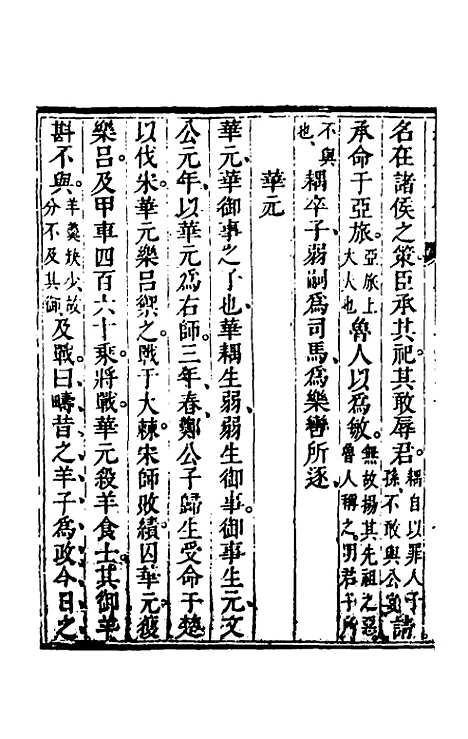 名在諸侯之策臣承其祀其敢辱君耦自以罪人子孫不敢與公宴請
承命于亞旅亞旅上大夫也魯人以為敏無故揚其先祖之惡魯人稱之明君子所
不與也耦卒子弱嗣爲司馬爲樂轡所逐
華元
華元華御事之子也華耦生弱弱生御事御事生元文
公元年以華元爲右師三年春鄭公子歸生受命于楚
以伐宋華元樂呂禦之戰于大棘宋師敗績囚華元獲
樂呂及甲車四百六十乘將戰華元殺羊食士其御羊
斟不與羊羹缺少故分不及其御及戰曰疇昔之羊子爲政今日之